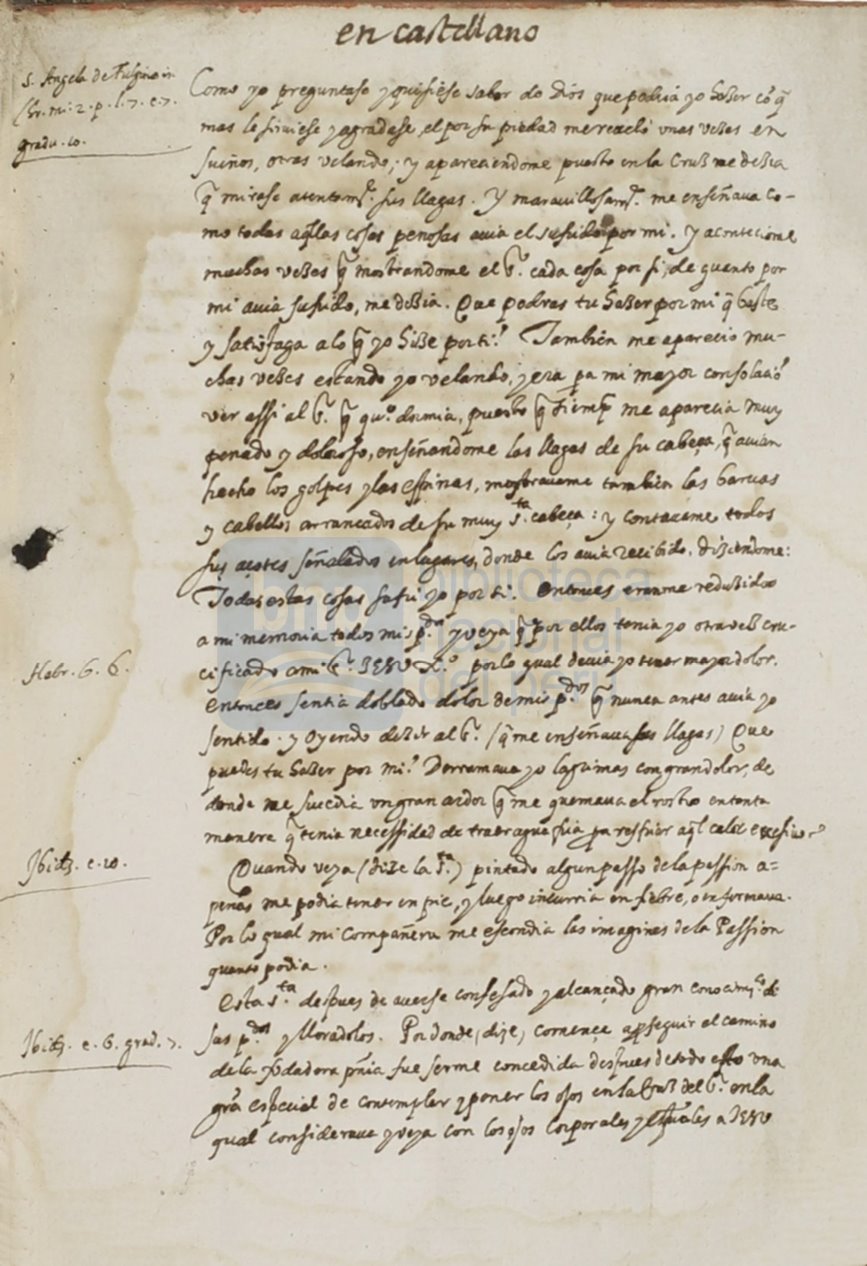 en castellano
S. Angela de Fulgino in
libr. mi. 2. p. l. 7. c. 7.
gradu. 10.
Como yo preguntase y quisiese saber de Dios que podria yo hazer cō q̃
mas le sirviese y agradase, el por su piedad me reveló unas vezes en
sueños, otras velando; y apareciendome puesto en la Cruz me dezia
q̃ mirase atentamte. sus llagas. Y maravillosamte. me enseñava co-
mo todas aqllas cosas penosas avia el sufrido por mi. Y acontecione
muchas vezes q̃ mostrandome el Sr. cada cosa por si, de quanto por
mi avia sufrido, me dezia. Que podras tu hazer por mi q̃ baste
y satisfaga a lo q̃ yo hize por ti? Tambien me aparecio mu-
chas vezes estando yo velando, y era pa mi mayor consolació
ver assi al Sr. q̃ qdo. dormia, puesto q̃ siempr me aparecia muy
penado y doloroso, enseñandome las llagas de su cabeça, q̃ avian
hecho los golpes y las espinas, mostravame tambien las barvas
y cabellos arrancados de su muy sta. cabeça: y contavame todos
sus açotes señalados en lugares, donde los avia recibido, diziendome:
Todas estas cosas sufri yo por ti. Entonces eranme reduzidos
a mi memoria todos mis pdos. y veya q̃ por ellos tenia yo otra vez cru-
Hebr. 6. 6.
cificado a mi Sr. IESU Xo. por lo qual devia yo tener mayor dolor.
Entonces sentia doblado dolor de mis pdos. q̃ nunca antes avia yo
sentido. y oyendo dezir al Sr. (q̃ me enseñava sus llagas) Que
puedes tu hazer por mi? Derramava yo lagrimas con gran dolor, de
donde me sucedia un gran ardor q̃ me quemava el rostro en tanta
manera q̃ tenia necessidad de traer agua fria pa resfriar aql calor excesivo.
Ibidē. c. 10.
Quando veya (dize la Sta.) pintado algun passo de la passion a=
penas me podia tener en pie, y luego incurria en fiebre, o enfermava.
Por lo qual mi Compañera me escondia las imagines de la Passion
quanto podia.
Esta sta. despues de averse confesado y alcançado gran conocimto. de
Ibidē. c. 6. grad. 7.
sus pdos. y lloradolos. Por donde, dije, comence a proseguir el camino
de la vdadera pnia fue serme concedida despues de todo esto una
gra especial de contemplar y poner los ojos en la Cruz del Sr. en la
qual considerava y veya con los ojos corporales y espuales a IESU
biblioteca
nacional
del perú